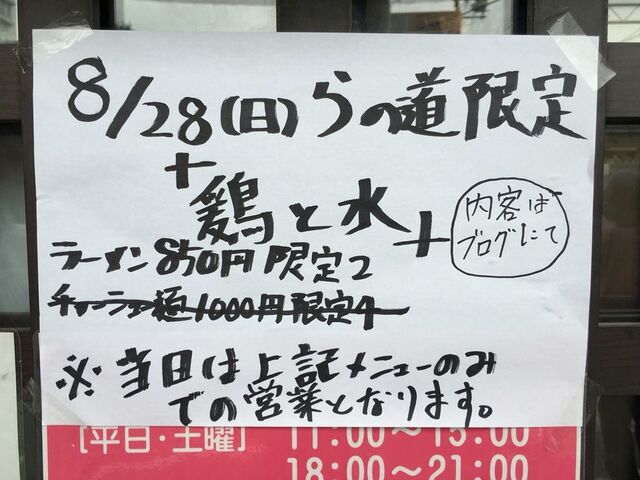 8/28(日)らの道限定
+鶏と水+
内容は
ブログにて
ラーメン850円 限定2
チャーシュー麺1000円限定4
※当日は上記メニューのみ
での営業となります。
[平日・土曜] 11:00〜15:00
18:00〜21:00